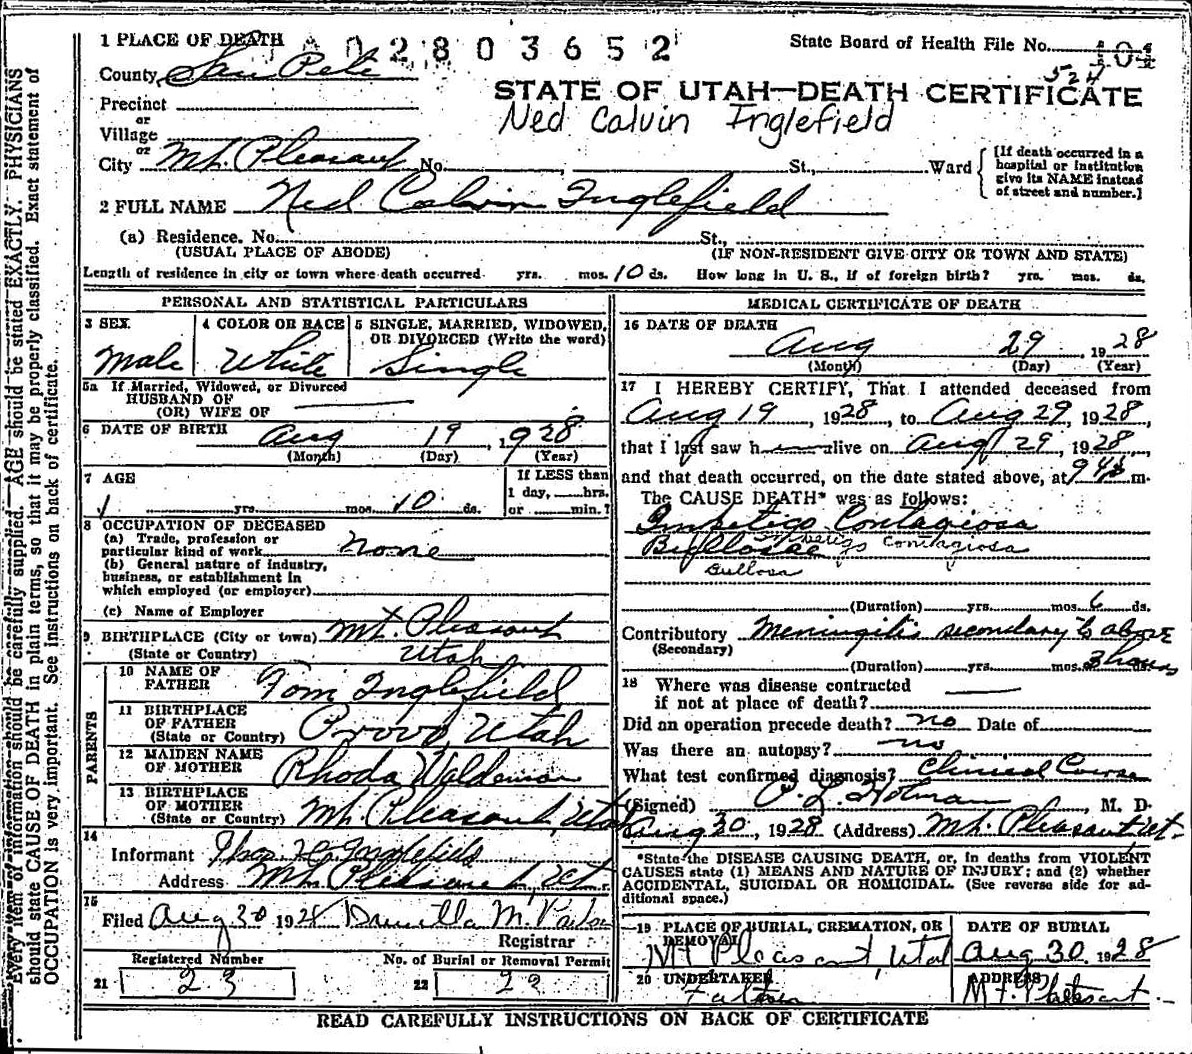 1 PLACE OF DEATH A 0 2 8 0 3 6 5 2 State Board of Health File No. 104
County San Pete 524
STATE OF UTAH—DEATH CERTIFICATE
Precinct
or
Ned Calvin Inglefield
Village
or
City Mt. Pleasant No. St., Ward
[If death occurred in a hospital or institution give its NAME instead of street and number.]
2 FULL NAME Ned Calvin Inglefield
(a) Residence. No. St.,
(USUAL PLACE OF ABODE) (IF NON-RESIDENT GIVE CITY OR TOWN AND STATE)
Length of residence in city or town where death occurred yrs. mos. 10 ds. How long in U. S., if of foreign birth? yrs. mos. ds.
PERSONAL AND STATISTICAL PARTICULARS
3 SEX
Male
4 COLOR OR RACE
White
5 SINGLE, MARRIED, WIDOWED,
OR DIVORCED (Write the word)
Single
5a If Married, Widowed, or Divorced
HUSBAND OF
(OR) WIFE OF
6 DATE OF BIRTH Aug 19, 1928
(Month) (Day) (Year)
7 AGE
yrs. mos. 10 ds.
If LESS than
1 day, hrs.
or min.?
8 OCCUPATION OF DECEASED
(a) Trade, profession or
particular kind of work none
(b) General nature of industry,
business, or establishment in
which employed (or employer)
(c) Name of Employer
9 BIRTHPLACE (City or town) Mt. Pleasant
(State or Country) Utah
PARENTS
10 NAME OF
FATHER Tom Inglefield
11 BIRTHPLACE
OF FATHER
(State or Country) Provo, Utah
12 MAIDEN NAME
OF MOTHER Rhoda Waldemar
13 BIRTHPLACE
OF MOTHER
(State or Country) Mt. Pleasant, Utah
14
Informant Thos. Inglefield
Address Mt. Pleasant, Ut.
15
Filed Aug 30 1928 M.
Registrar
Registered Number No. of Burial or Removal Permit
21 23 22 22
MEDICAL CERTIFICATE OF DEATH
16 DATE OF DEATH
Aug 29, 1928
(Month) (Day) (Year)
17 I HEREBY CERTIFY, That I attended deceased from
Aug 19, 1928, to Aug 29, 1928,
that I last saw h alive on Aug 29, 1928,
and that death occurred, on the date stated above, at m.
The CAUSE DEATH* was as follows:
Impetigo Contagiosa
Bullosae Impetigo contagiosa
Bullosa
(Duration) yrs. mos. 6 ds.
Contributory Meningitis secondary to above
(Secondary)
(Duration) yrs. mos. 3 hours
18 Where was disease contracted
if not at place of death?
Did an operation precede death? no Date of
Was there an autopsy? no
What test confirmed diagnosis? Clinical Course
(Signed) P. L. Holman, M. D.
Aug 30, 1928 (Address) Mt. Pleasant Ut.
*State the DISEASE CAUSING DEATH, or, in deaths from VIOLENT
CAUSES state (1) MEANS AND NATURE OF INJURY; and (2) whether
ACCIDENTAL, SUICIDAL OR HOMICIDAL. (See reverse side for ad-
ditional space.)
19 PLACE OF BURIAL, CREMATION, OR
REMOVAL
Mt Pleasant, Utah
DATE OF BURIAL
Aug 30. 1928
20 UNDERTAKER
ADDRESS
Mt. Pleasant
READ CAREFULLY INSTRUCTIONS ON BACK OF CERTIFICATE
Every item of information should be carefully supplied. AGE should be stated EXACTLY. PHYSICIANS
should state CAUSE OF DEATH in plain terms, so that it may be properly classified. Exact statement of
OCCUPATION is very important. See instructions on back of certificate.